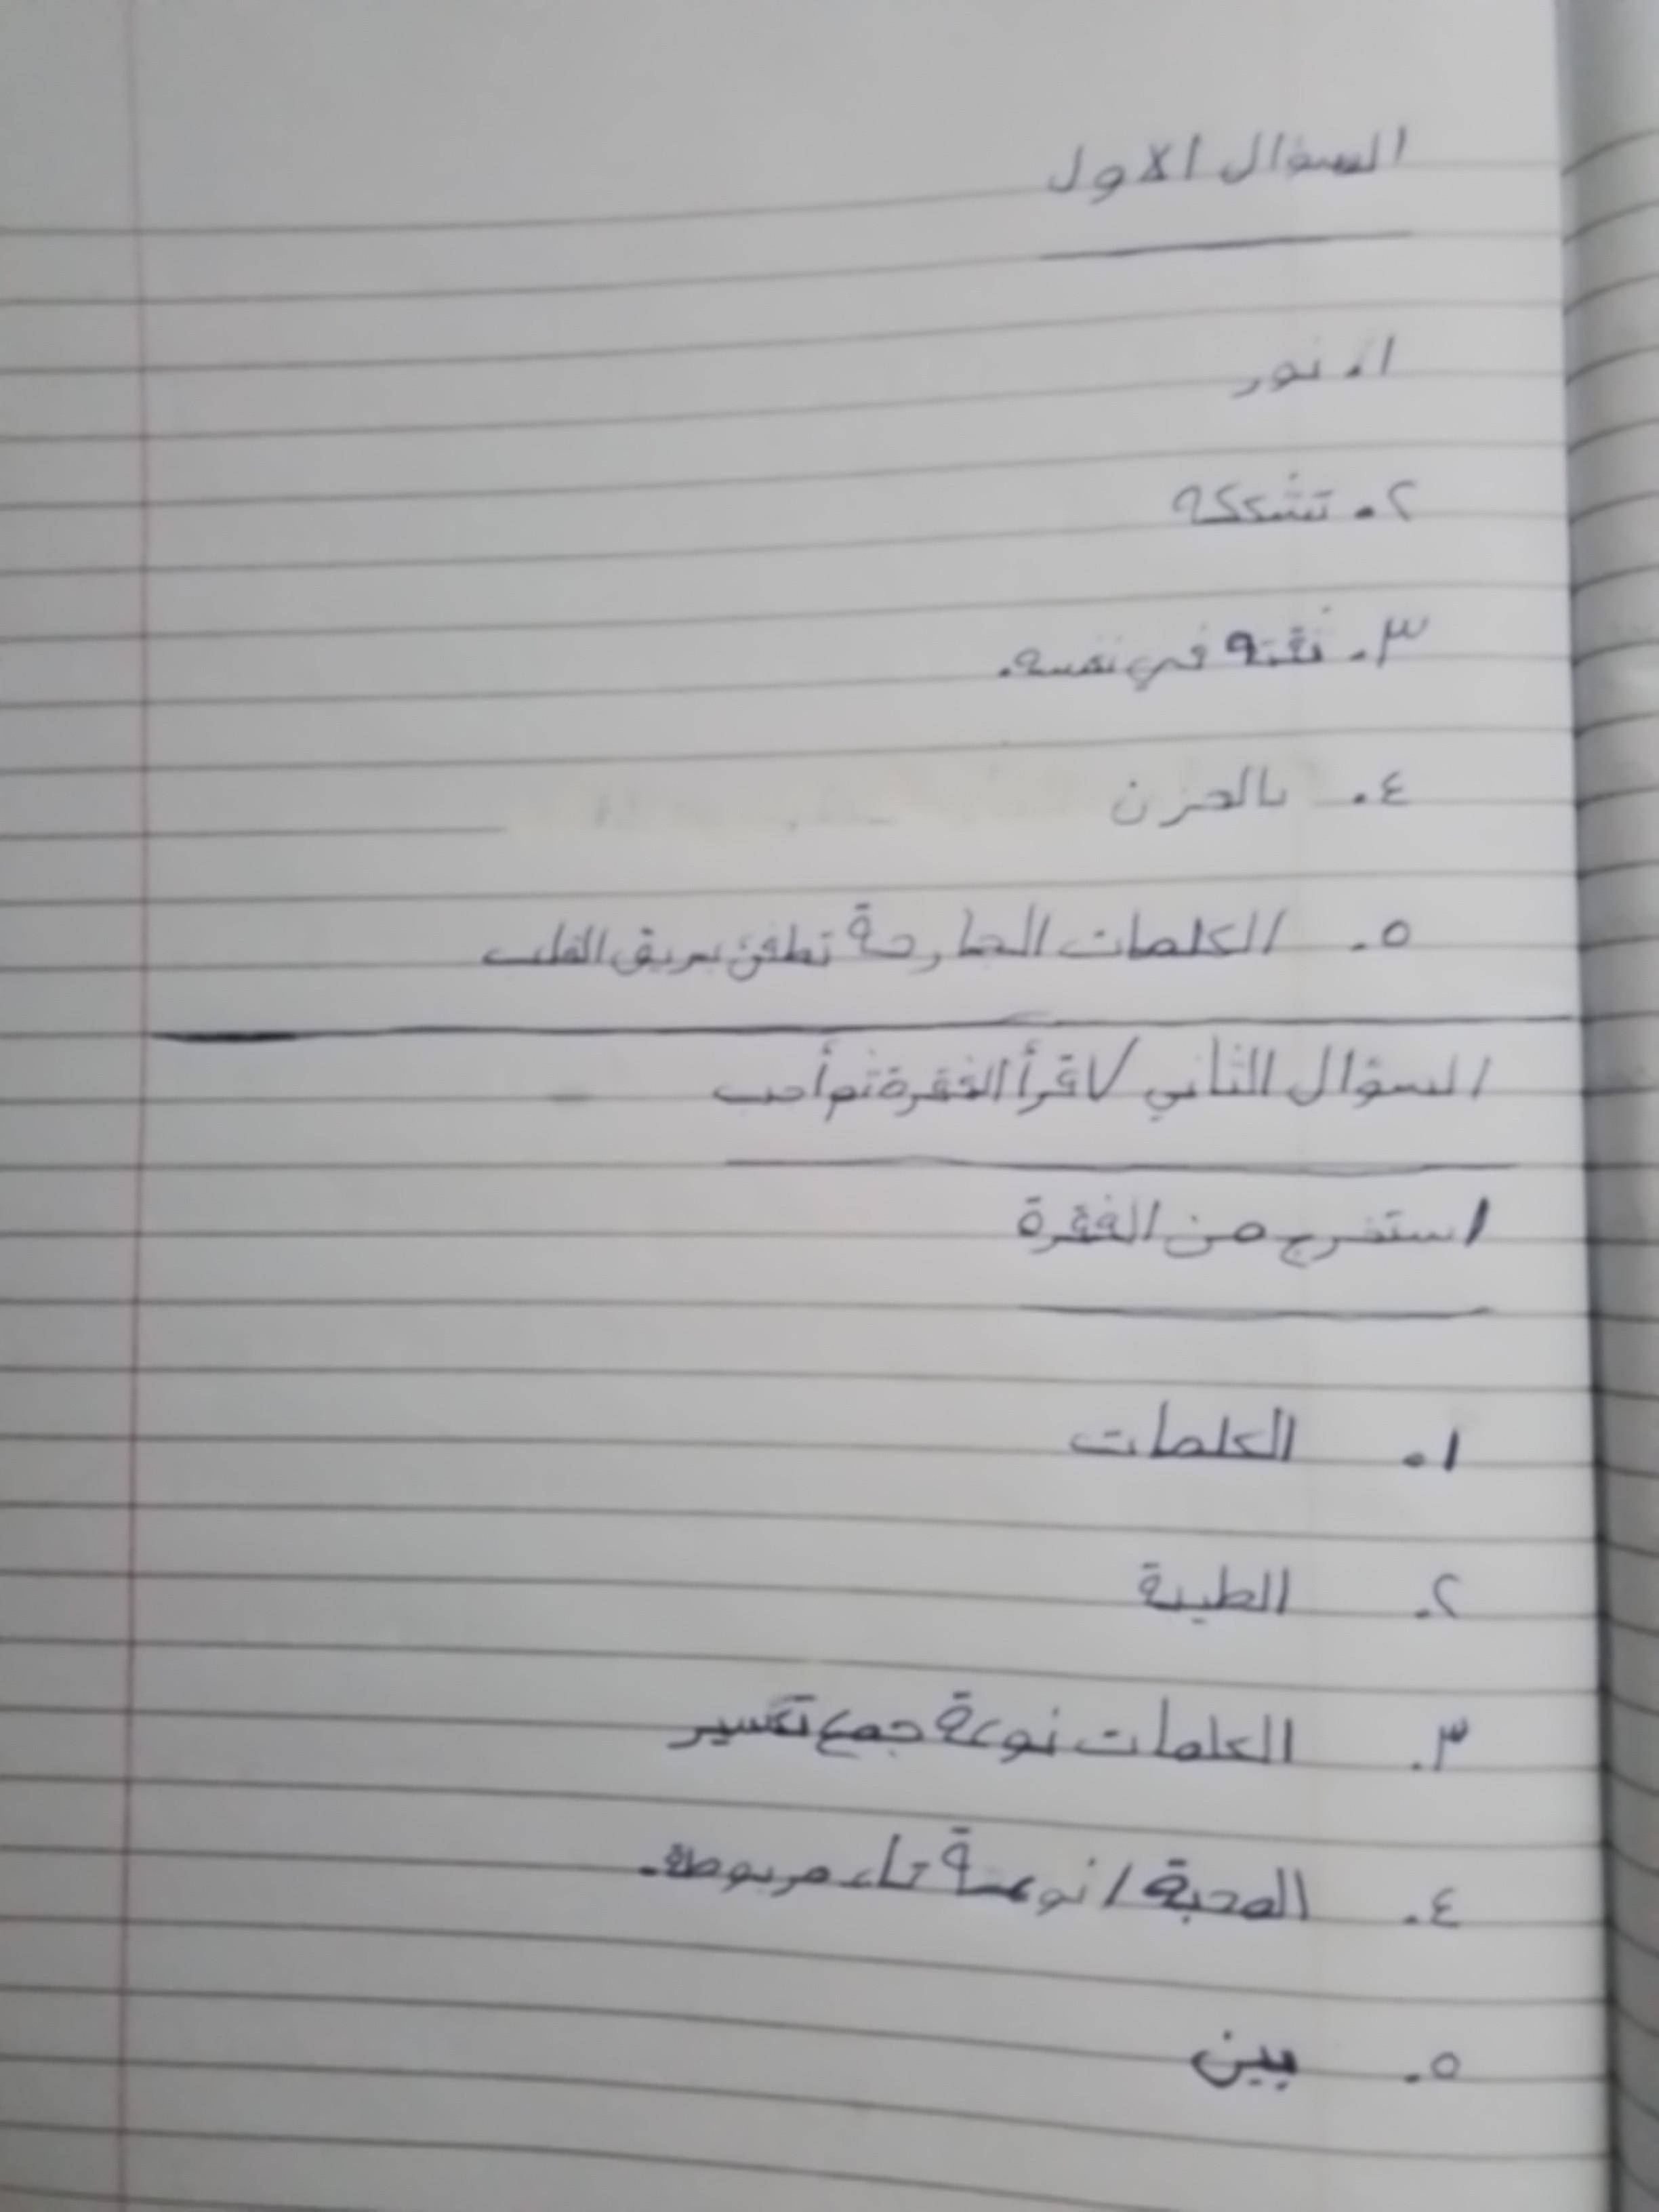 السؤال الاول
١. نور
٢. تشككه
٣. ثقته في نفسه.
٤. بالحزن
٥. الكلمات الجارحة تطفئ بريق القلب
السؤال الثاني / اقرأ الفقرة ثم أجب
استخرج من الفقرة
١. الكلمات
٢. الطيبة
٣. الكلمات نوعة جمع تكسير
٤. المحبة / نوعة تاء مربوطة.
٥. بين